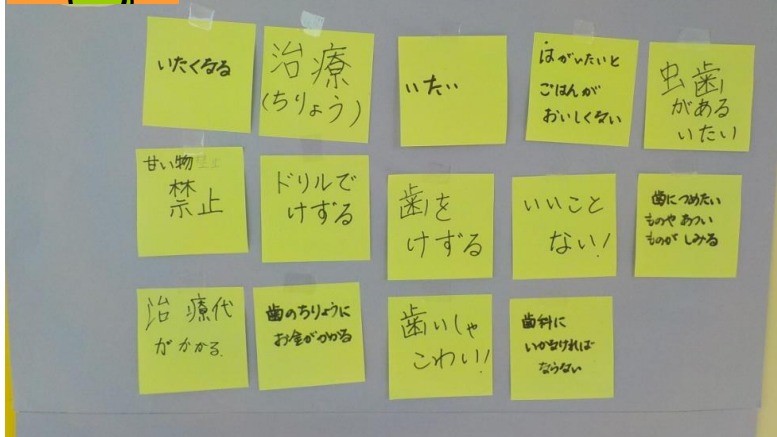 いたくなる
治療
(ちりょう)
いたい
はがいたいと
ごはんが
おいしくない
虫歯
がある
いたい
甘い物
禁止
ドリルで
けずる
歯を
けずる
いいこと
ない!
歯につめたい
ものやあつい
ものがしみる
治療代
がかかる。
歯のちりょうに
お金がかかる
歯いしゃ
こわい!
歯科に
いかなければ
ならない